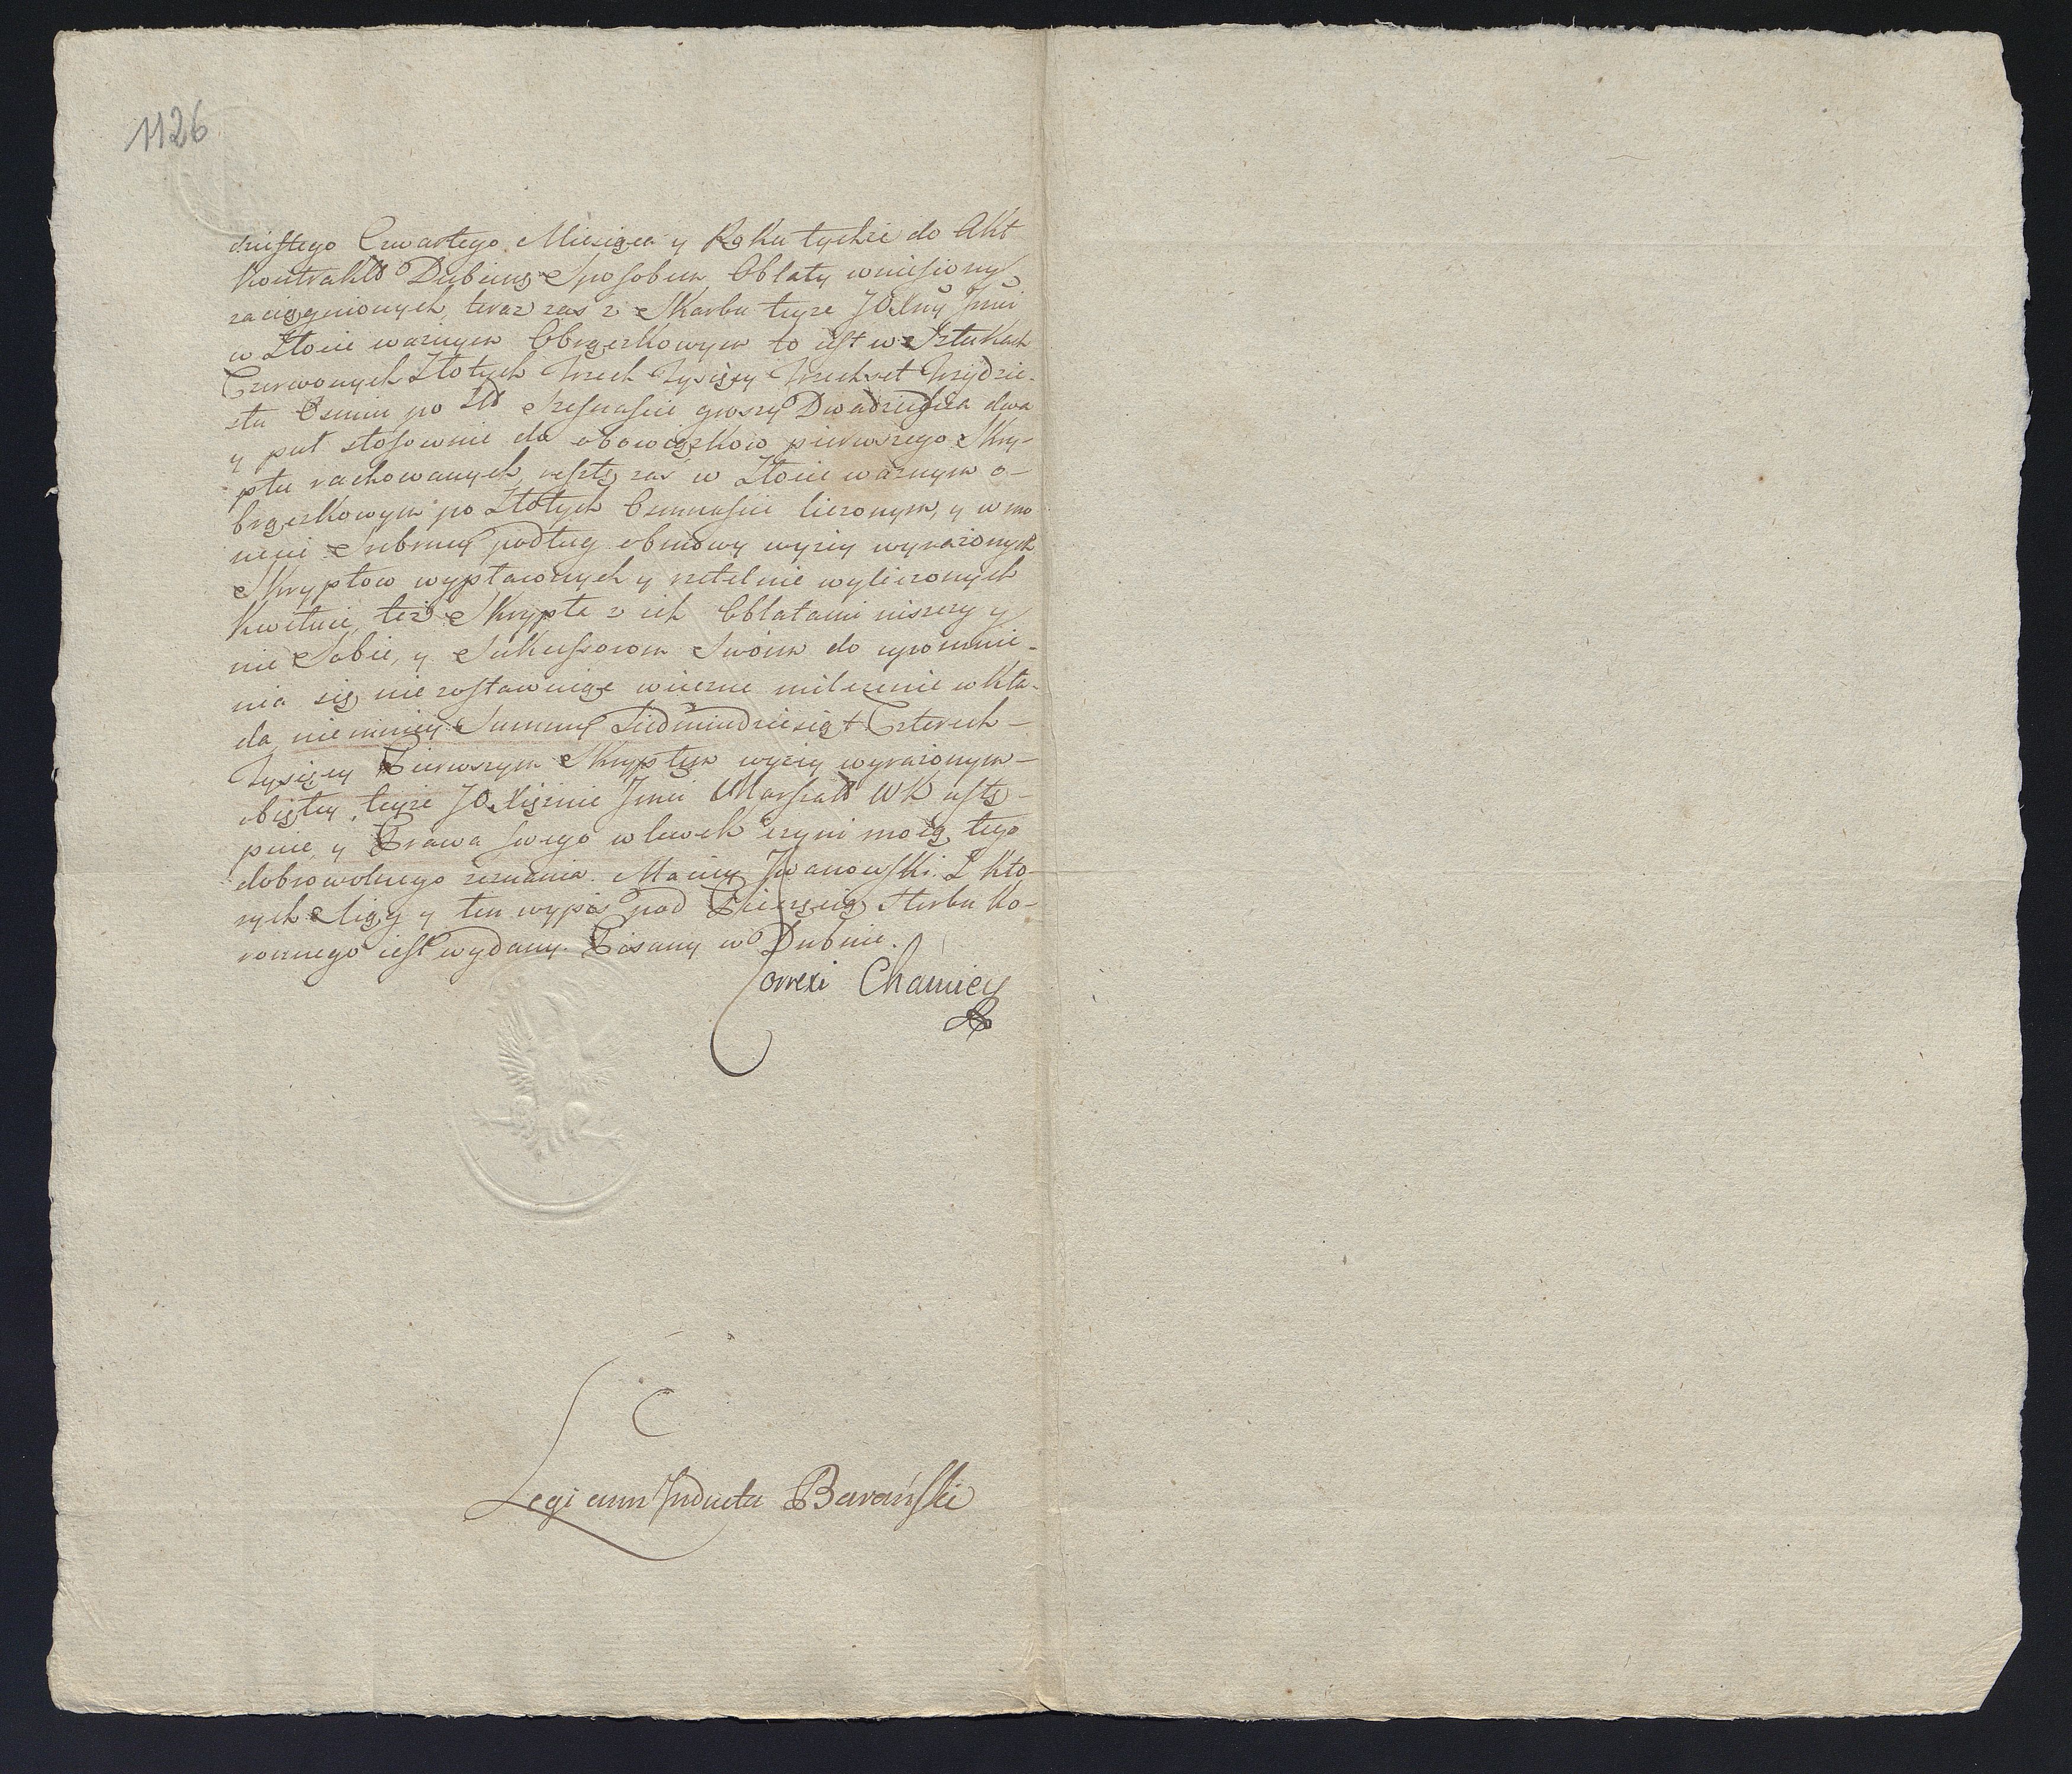 1126
dziestego Czwartego Miesiąca y Roku tychże do Akt
Kontraktó Dubieńs Sposobem Oblaty wniesiony
zaciągnionych, teraz zas z Skarbu teyże JOXny Jmći
w Złocie ważnym Obrączkowym to iest w Sztukach
Czerwonych Złotych Trzech Tysięcy Trzechset Trzydzie-
stu Osmiu po Złł Szesnaście groszy Dwadzieścia dwa
y puł stosownie do obowiązków pierwszego Skry-
ptu rachowanych, resztę zaś w Złocie ważnym o-
brączkowym po Złotych Osmnaście liczonym, y w mo
necie Srebrney podług obmowy wyżey wyrażonych
Skryptow wypłaconych y rzetelnie wyliczonych
kwituie, też Skrypta z ich Oblatami niszczy y
nie Sobie, y Sukcessorom Swoim do upomnie-
nia się nie zostawuiąc wieczne milczenie wkła-
da, niemniey Summę Siedmdziesiąt Czterech
Tysięcy Pierwszym Skryptem wyżey wyrażonym
obiętey, teyże JO Xiężnie Jmci Marszałł WK ustę-
puie, y Prawa swego wlewek czyni mocą tego
dobrowolnego zeznania. Maciey Iwanowski. Z kto-
rych Xiąg y ten wypis pod Pieczęcią Herbu Ko-
ronnego iest wydany. Pisany w Dubnie.
Correxi Chamiec
Legi cum Inducta Barański